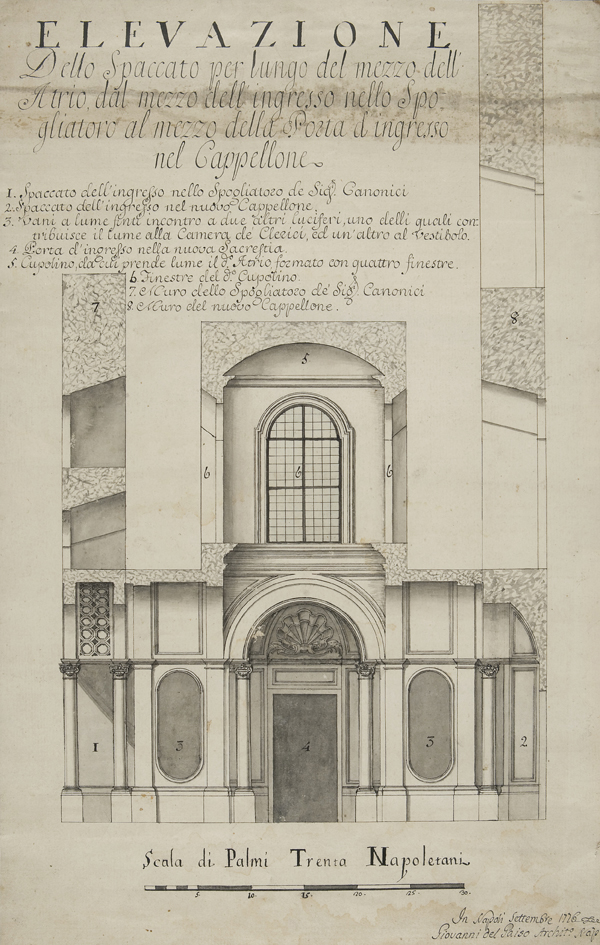 ELEVAZIONE
Dello Spaccato per lungo del mezzo dell'
Atrio, dal mezzo dell'ingresso nello Spo-
gliatoro al mezzo della Porta d'ingresso
nel Cappellone
1. Spaccato dell'ingresso nello Spogliatoro de Sig.ri Canonici
2. Spaccato dell'ingresso nel nuovo Cappellone.
3. Vani a lume finti incontro a due altri luciferi, uno delli quali con-
tribuisce il lume alla Camera de Clerici, ed un'altro al Vestibolo.
4. Porta d'ingresso nella nuova Sacrestia.
5. Cupolino, da cui prende lume il d.o Atrio formato con quattro finestre.
6. Finestre del d.o Cupolino.
7. Muro dello Spogliatoro de' Sig.ri Canonici
8. Muro del nuovo Cappellone.
7
8
5
6 6 6
1 3 4 3 2
Scala di Palmi Trenta Napoletani
5. 10. 15. 20. 25. 30.
In Napoli Settembre 1726
Giovanni del Gaiso Archit.o Nap.